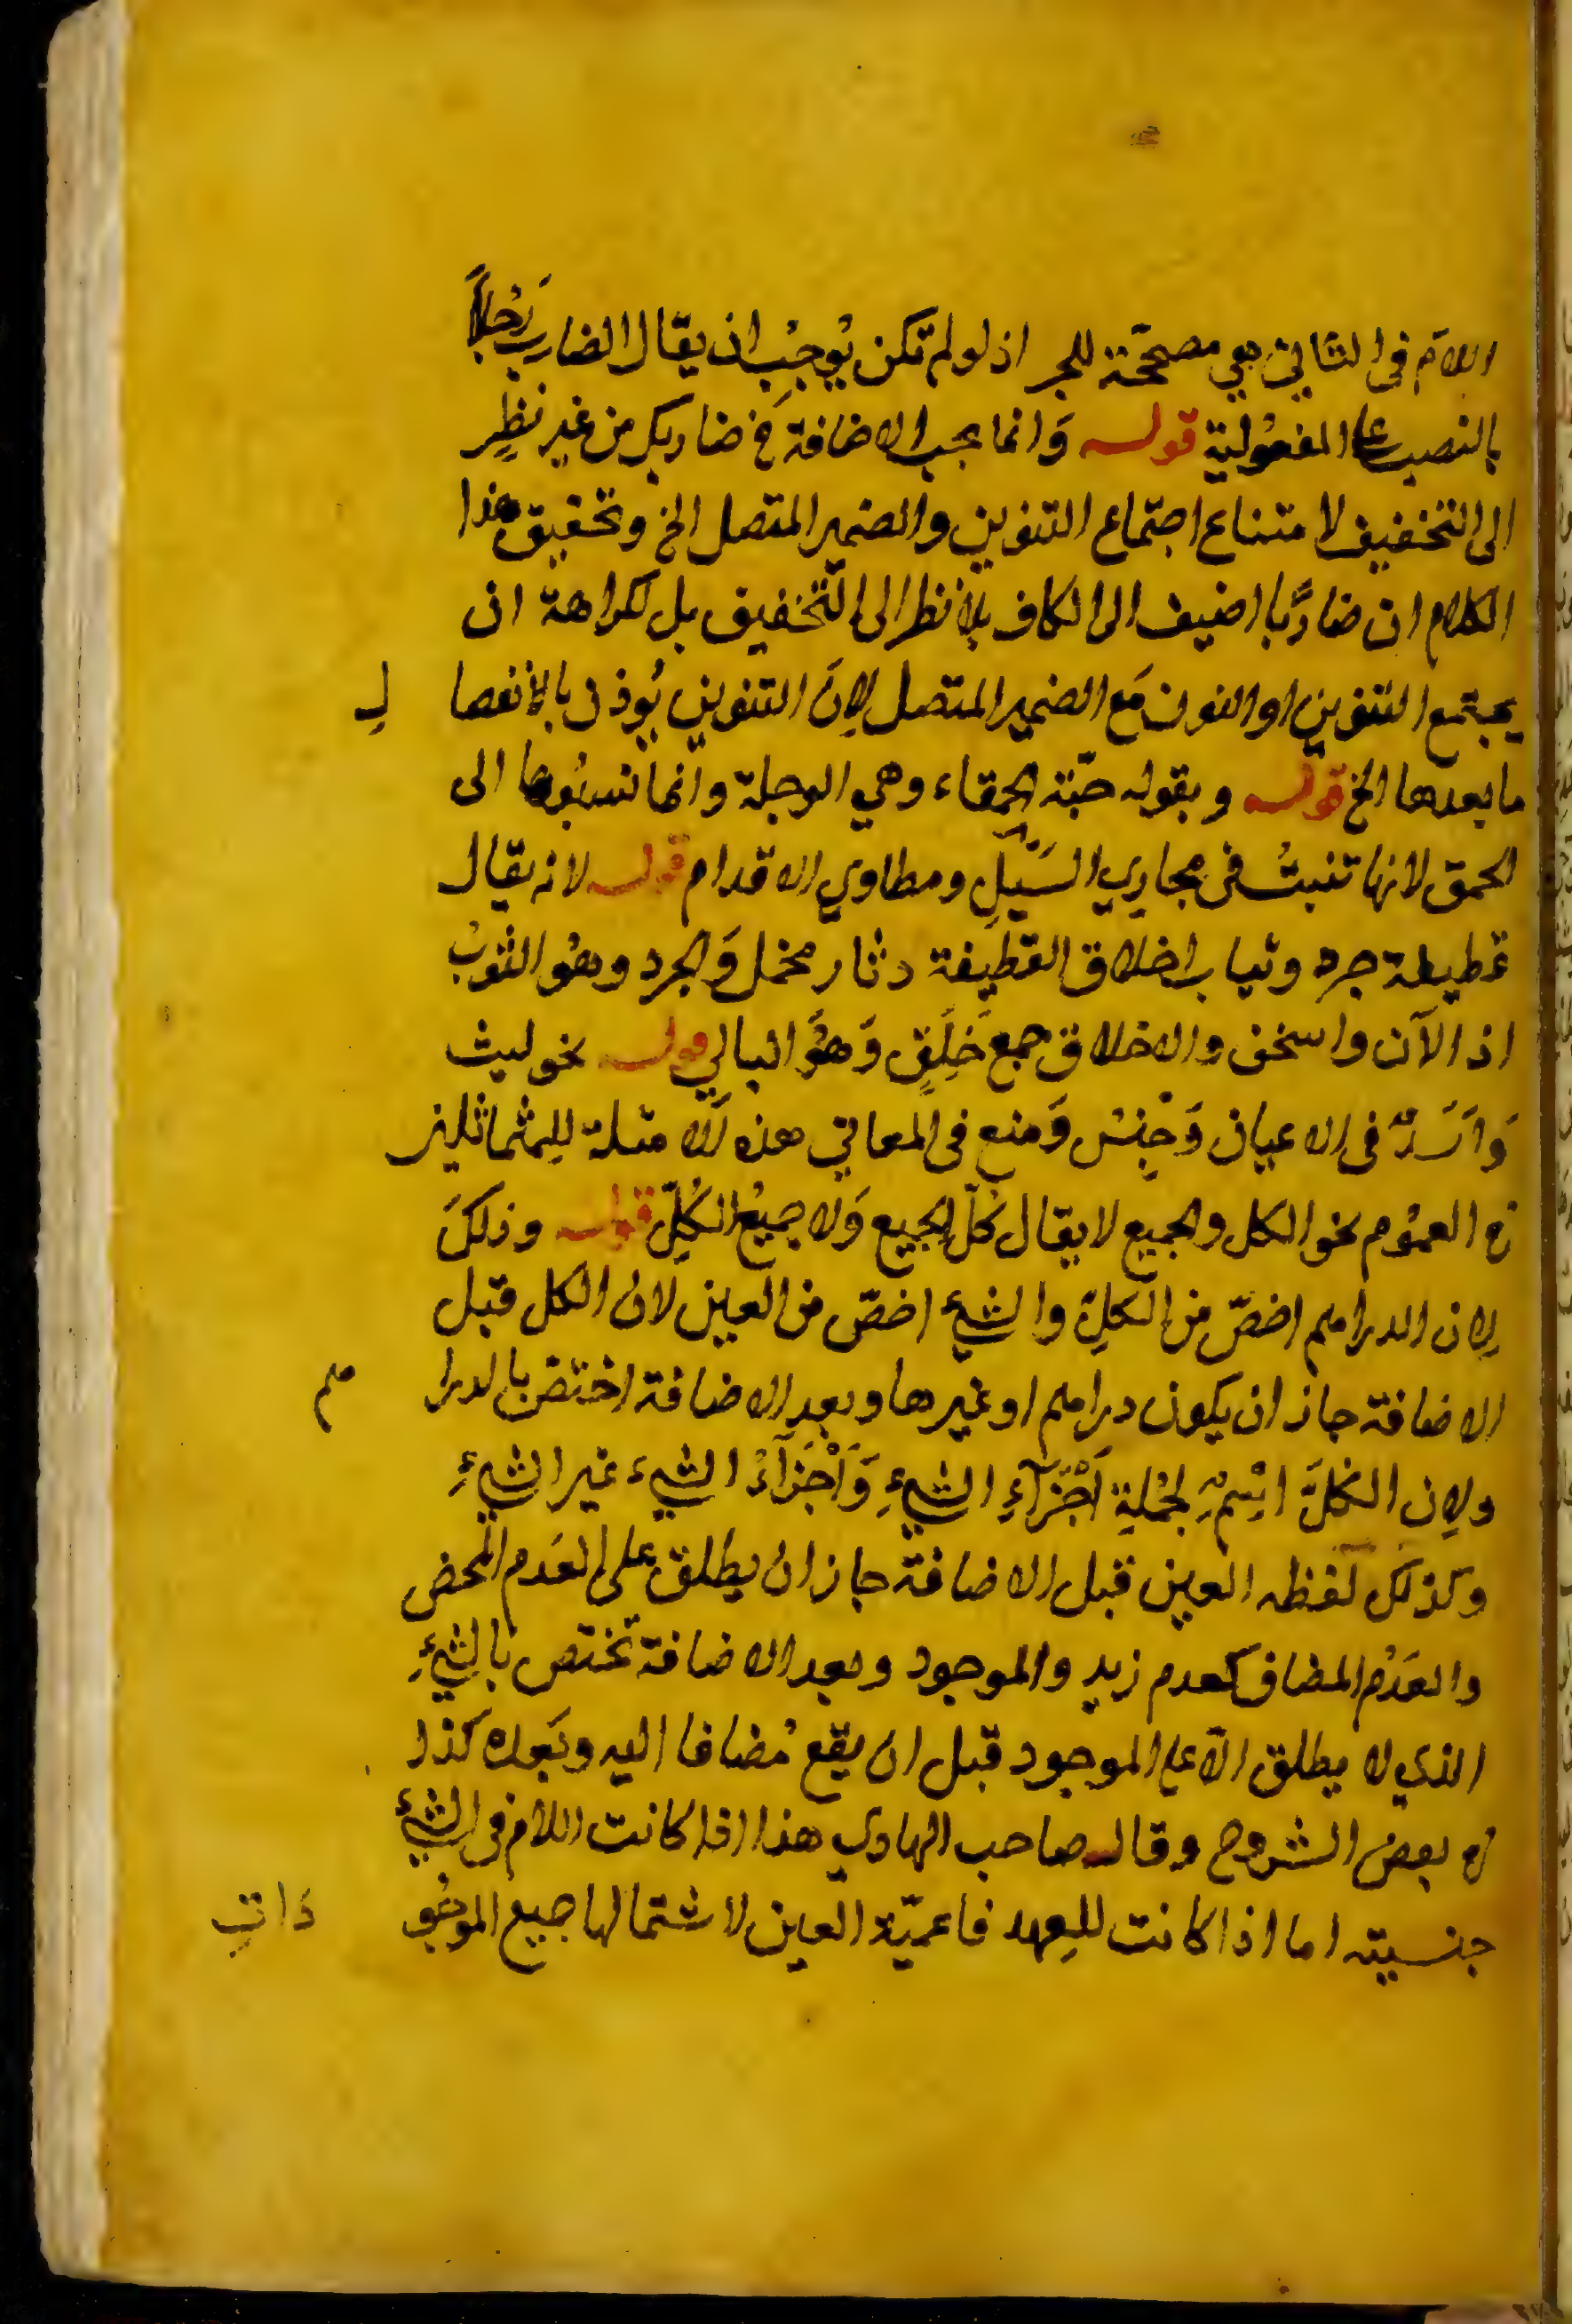 اللام فى الثاني هي مصححّة للجر اذ لو لم تكن يُوجبُ ان يقال الضارب رَجُلاً
بالنصب على المفعُولية قوله وَانما يجب الاضافة في ضاربك من غير نظرٍ
الى التخفيف لامتناع اجتماع التنوين والضمير المتصل الخ وتحقيق هذا
الكلام ان ضاربًا اضيف الى الكاف بلا نظر الى التّخفيف بل لكراهة ان
يجتمع التنوين او النون مَع الضمير المتصل لان التنوين يُوذن بالانفصا لِ
ما بعدها الخ قوله وبقوله حبّة الحمقاء وهي الرجلة وانما نسبُوها الى
الحمق لانها تنبتُ فى مجارِي السَيْلِ ومطاوي الاقدام قوله لانه يقال
قطيفة جرد وثياب اخلاق القطيفة دثار مخمل وَالجرد وهُو الثوبُ
اذا الآن وانسخن والاخلاق جمع خَلِقٍ وَهوَ البالي قوله نحو ليث
وَاَسَدٌ فى الاعيان وَحبْسْ وَمنع فى المعاني هذه الامثلة للمتماثلين
في العمُوم نحو الكل والجميع لا يقال كُلّ الجميع وَلا جميعُ الكُلِّ قوله وذلكَ
لان الدراهم اخصّ من الكلِّ والشيءُ اخصّ من العين لان الكل قبل
الاضافة جاز ان يكون دراهم او غيرها وبعد الاضافة اختص بالدرا هم
ولان الكلَّ اِسْمٌ لجُملةِ اَجْزَآءِ الشيءِ وَاَجْزَآءُ الشيء غير الشيءِ
وكذلك لفظه العين قبل الاضافة جاز ان يطلق على العَدم المحض
والعَدَمْ المضاف كعدم زيد والموجود وبعد الاضافة تختص بالشيءِ
الذي لا يطلق الّا على الموجود قبل ان يقع مُضافا اليه وبَعده كذا
في بعض الشروح وقال صاحب الهادي هذا اذا كانت اللام فى الشيءِ
جنسيته اما اذا كانت للعهد فاعميّة العين لاشتمالها جميع الموجُو دَاتِ